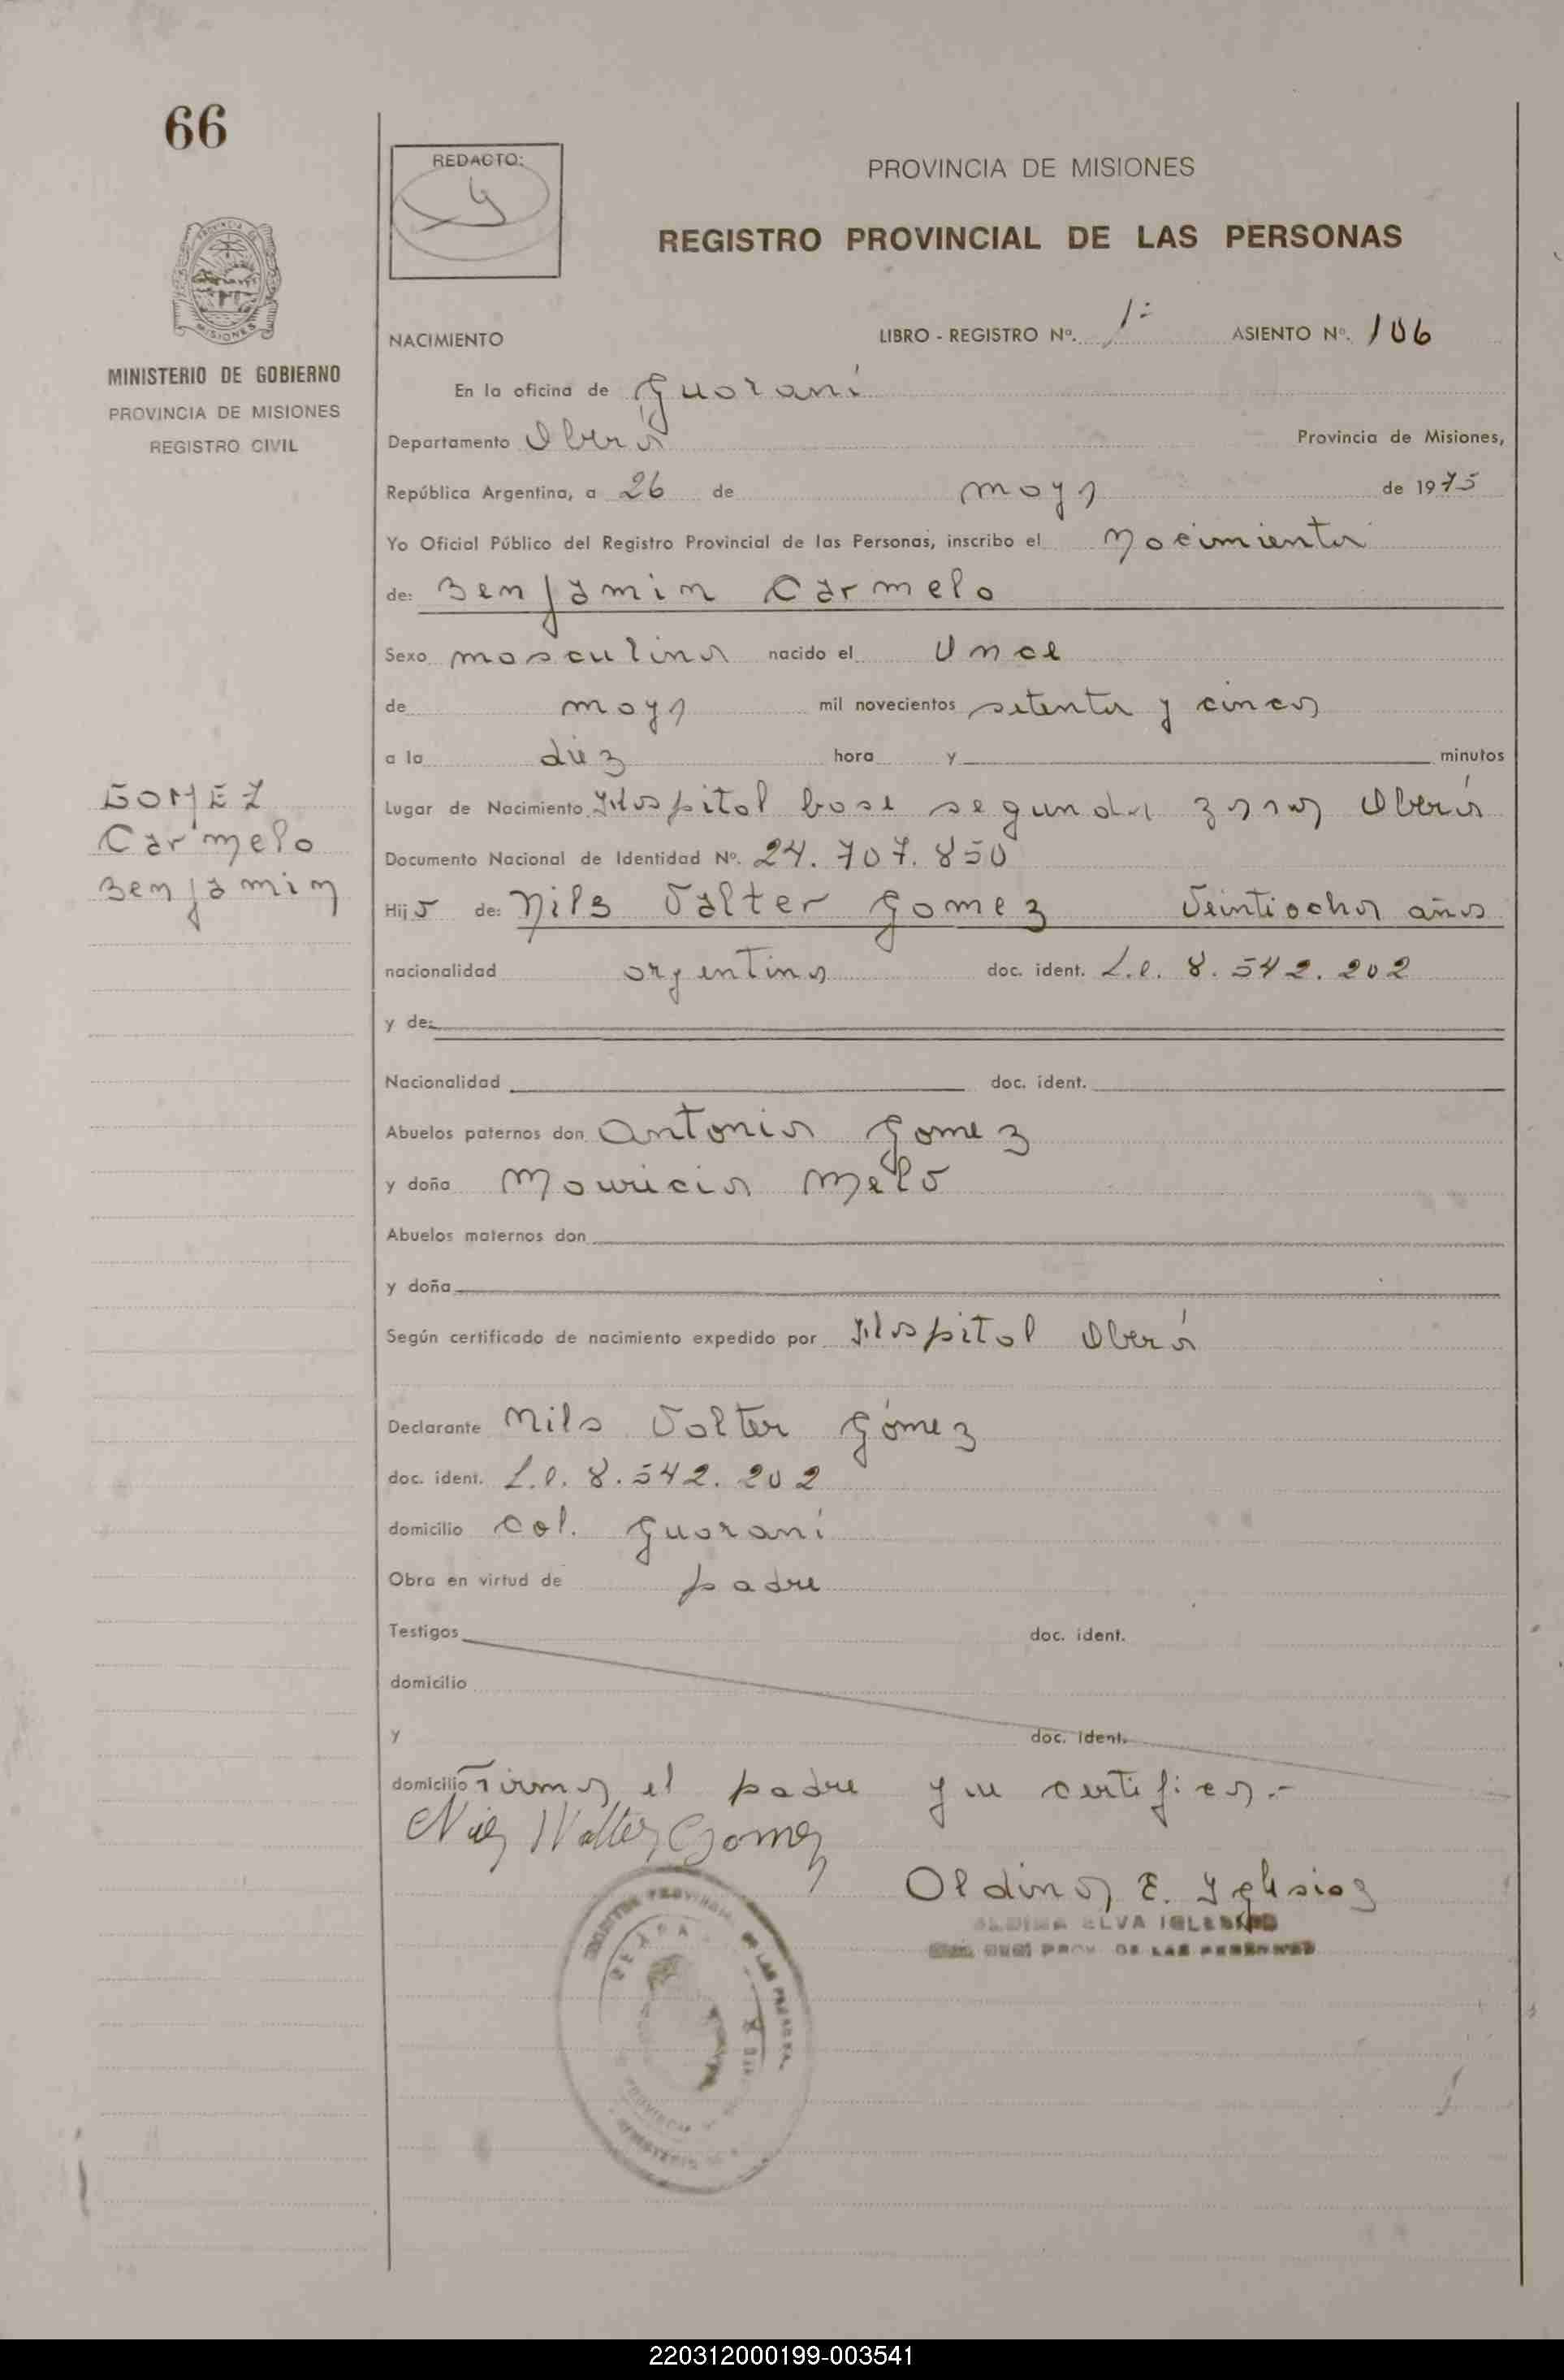 66
REDACTO:
PROVINCIA DE MISIONES
REGISTRO PROVINCIAL DE LAS PERSONAS
MISIONES
MINISTERIO DE GOBIERNO
PROVINCIA DE MISIONES
REGISTRO CIVIL
NACIMIENTO LIBRO - REGISTRO Nº. 1º ASIENTO Nº. 106
En la oficina de Guaraní
Departamento Oberá Provincia de Misiones,
República Argentina, a 26 de mayo de 1975
Yo Oficial Público del Registro Provincial de las Personas, inscribo el Nacimiento
de: Benjamin Carmelo
Sexo masculino nacido el Once
de mayo mil novecientos setenta y cinco
a la diez hora y minutos
GOMEZ
Carmelo
Benjamin
Lugar de Nacimiento Hospital base segunda zona Oberá
Documento Nacional de Identidad Nº. 24.707.850
Hijo de: Nils Valter Gomez Veintiocho años
nacionalidad argentino doc. ident. L.e. 8.542.202
y de:
Nacionalidad doc. ident.
Abuelos paternos don Antonio Gomez
y doña Mauricia Melo
Abuelos maternos don
y doña
Según certificado de nacimiento expedido por Hospital Oberá
Declarante Nils Valter Gómez
doc. ident. L.e. 8.542.202
domicilio Col. Guaraní
Obra en virtud de padre
Testigos doc. ident.
domicilio
y doc. ident.
domicilio Firma el padre que certifico.-
Nils Walter Gomez
Oldina E. Iglesias
ELVA IGLESIAS
PROV. DE LAS PERSONAS
220312000199-003541